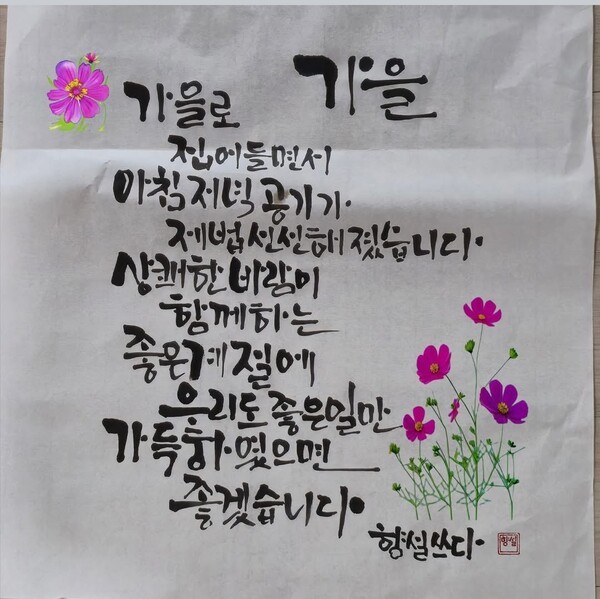 가을
가을로
접어들면서
아침 저녁 공기가
제법 선선해졌습니다.
상쾌한 바람이
함께하는
좋은 계절에
우리도 좋은 일만
가득하였으면
좋겠습니다.
향설 쓰다.
향설